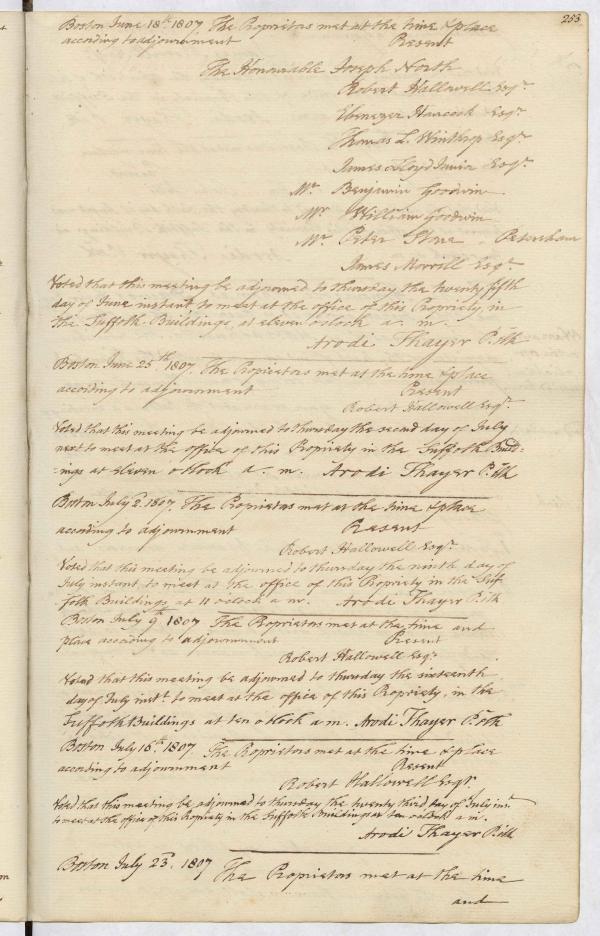 253
Boston June 18th. 1807. The Proprietors met at the time & place
according to adjournment Present
The Honourable Joseph North
Robert Hallowell Esqr.
Ebenezer Hancock Esqr.
Thomas L. Winthrop Esqr.
James Lloyd Junior Esqr.
Mr. Benjamin Goodwin
Mr. William Goodwin
Mr. Peter Stone, Petersham
James Morrill Esqr.
Voted that this meeting be adjourned to thursday the twenty fifth
day of June instant, to meet at the office of this Propriety, in
the Suffolk Buildings, at eleven oclock a. m.
Arodi Thayer P. Clk
Boston June 25th. 1807. The Proprietors met at the time & place
according to adjournment Present
Robert Hallowell Esqr.
Voted that this meeting be adjourned to thursday the second day of July
next to meet at the office of this Propriety in the Suffolk Build=
=ings at eleven oClock a. m. Arodi Thayer P. Clk
Boston July 2. 1807. The Proprietors met at the time & place
according to adjournment Present
Robert Hallowell Esqr.
Voted that this meeting be adjourned to thursday the ninth day of
July instant, to meet at the office of this Propriety in the Suf
folk Buildings, at 11 oclock a m. Arodi Thayer P. Clk
Boston July 9. 1807 The Proprietors met at the time and
place according to adjournment Present
Robert Hallowell Esqr.
Voted that this meeting be adjourned to thursday the sixteenth
day of July instt. to meet at the office of this Propriety, in the
Suffolk Buildings at ten oClock a m. Arodi Thayer P. Clk
Boston July 16th. 1807 The Proprietors met at the time & place
according to adjournment Present
Robert Hallowell Esqr
Voted that this meeting be adjourned to thursday the twenty third day of July inst.
to meet at the office of this Propriety in the Suffolk Buildings at ten oclock a m.
Arodi Thayer P. Clk
Boston July 23d. 1807 The Proprietors met at the time
and